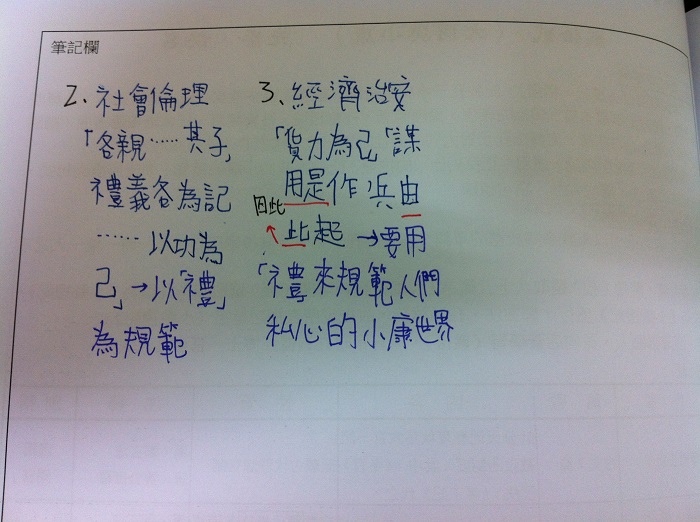 筆記欄
2、社會倫理
「各親……其子」
禮義各為記
……以功為
己」→以「禮」
為規範
3、經濟治安
「貨力為己」「謀
用是作兵由
因此
此起→要用
「禮來規範人們
私心的小康世界